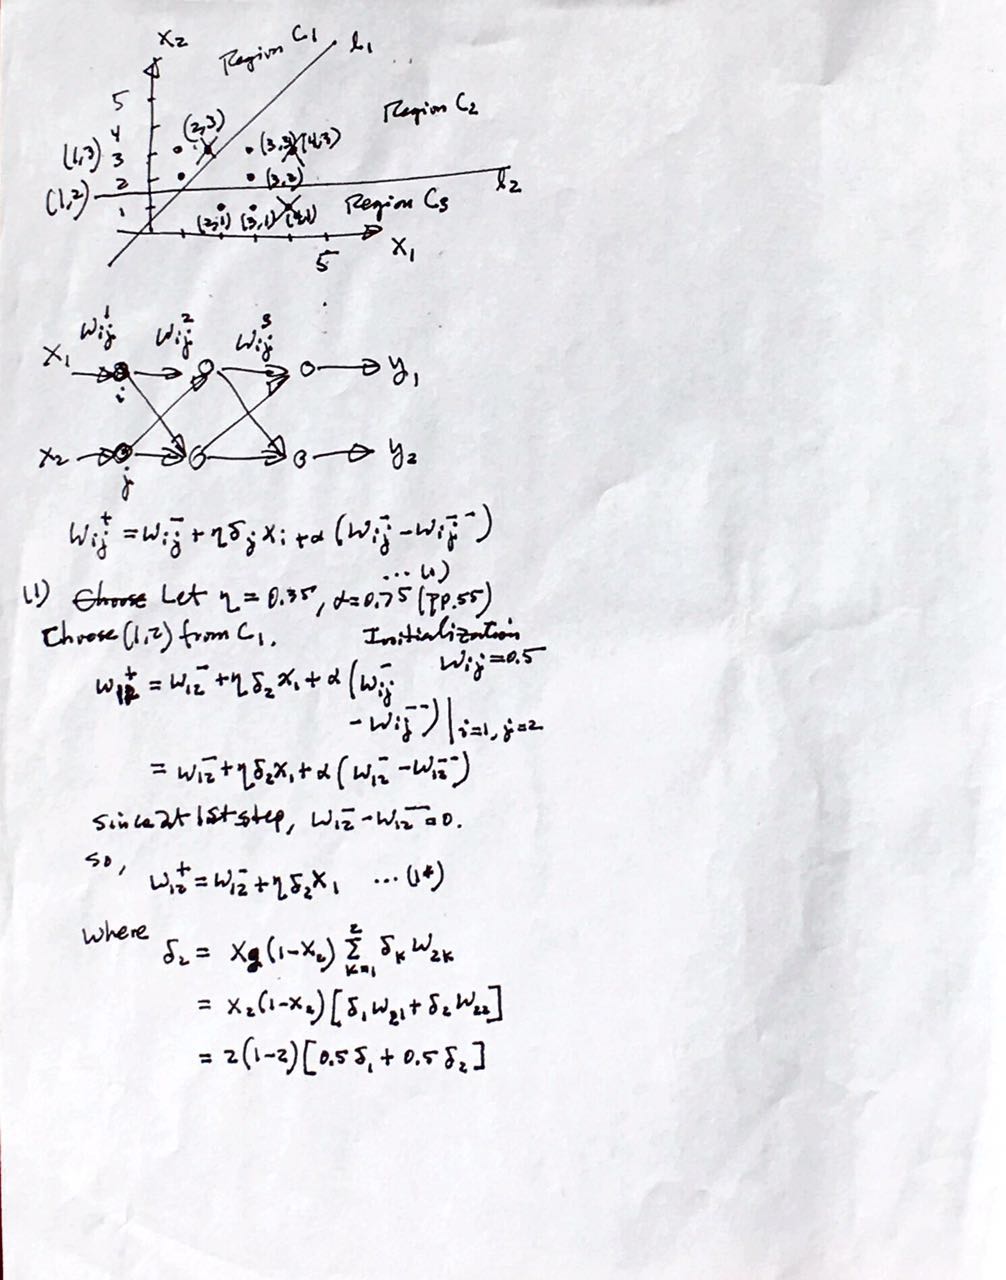 X₂
Region C₁
l₁
5
Region C₂
4
(2,3)
(1,3) 3
(3,3) (4,3)
2
(3,2)
(1,2)
l₂
1
(2,1) (3,1) (4,1)
Region C₃
5
X₁
Wij¹ Wij² Wij³
X₁
y₁
i
X₂
y₂
j
Wij⁺ = Wij⁻ + ηδj xi + α (Wij⁻ - Wij⁻⁻)
... (1)
(1) Choose Let η = 0.35, α=0.75 (PP.55)
Choose (1,2) from C₁. Initialization
Wij=0.5
W12⁺ = W12⁻ + ηδ₂x₁ + α (Wij⁻
- Wij⁻⁻)|i=1, j=2
= W12⁻ + ηδ₂x₁ + α (W12⁻ - W12⁻⁻)
since at 1st step, W12⁻ - W12⁻⁻ = 0.
so,
W12⁺ = W12⁻ + ηδ₂x₁ ... (1*)
where
δ₂ = x₂(1-x₂) Σ k=1 2 δk W2k
= x₂(1-x₂)[δ₁W21 + δ₂W22]
= 2(1-2)[0.5δ₁ + 0.5δ₂]